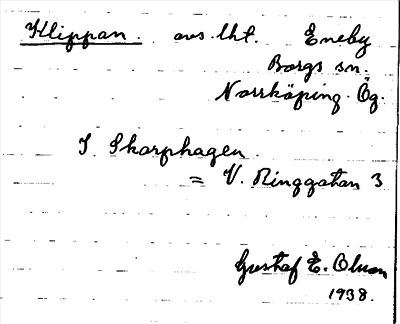 Klippan. avs. lht. Eneby
Borgs sn.
Norrköping. Ög.
I Skarphagen
= V. Ringgatan 3
Gustaf E. Olsson
1938.